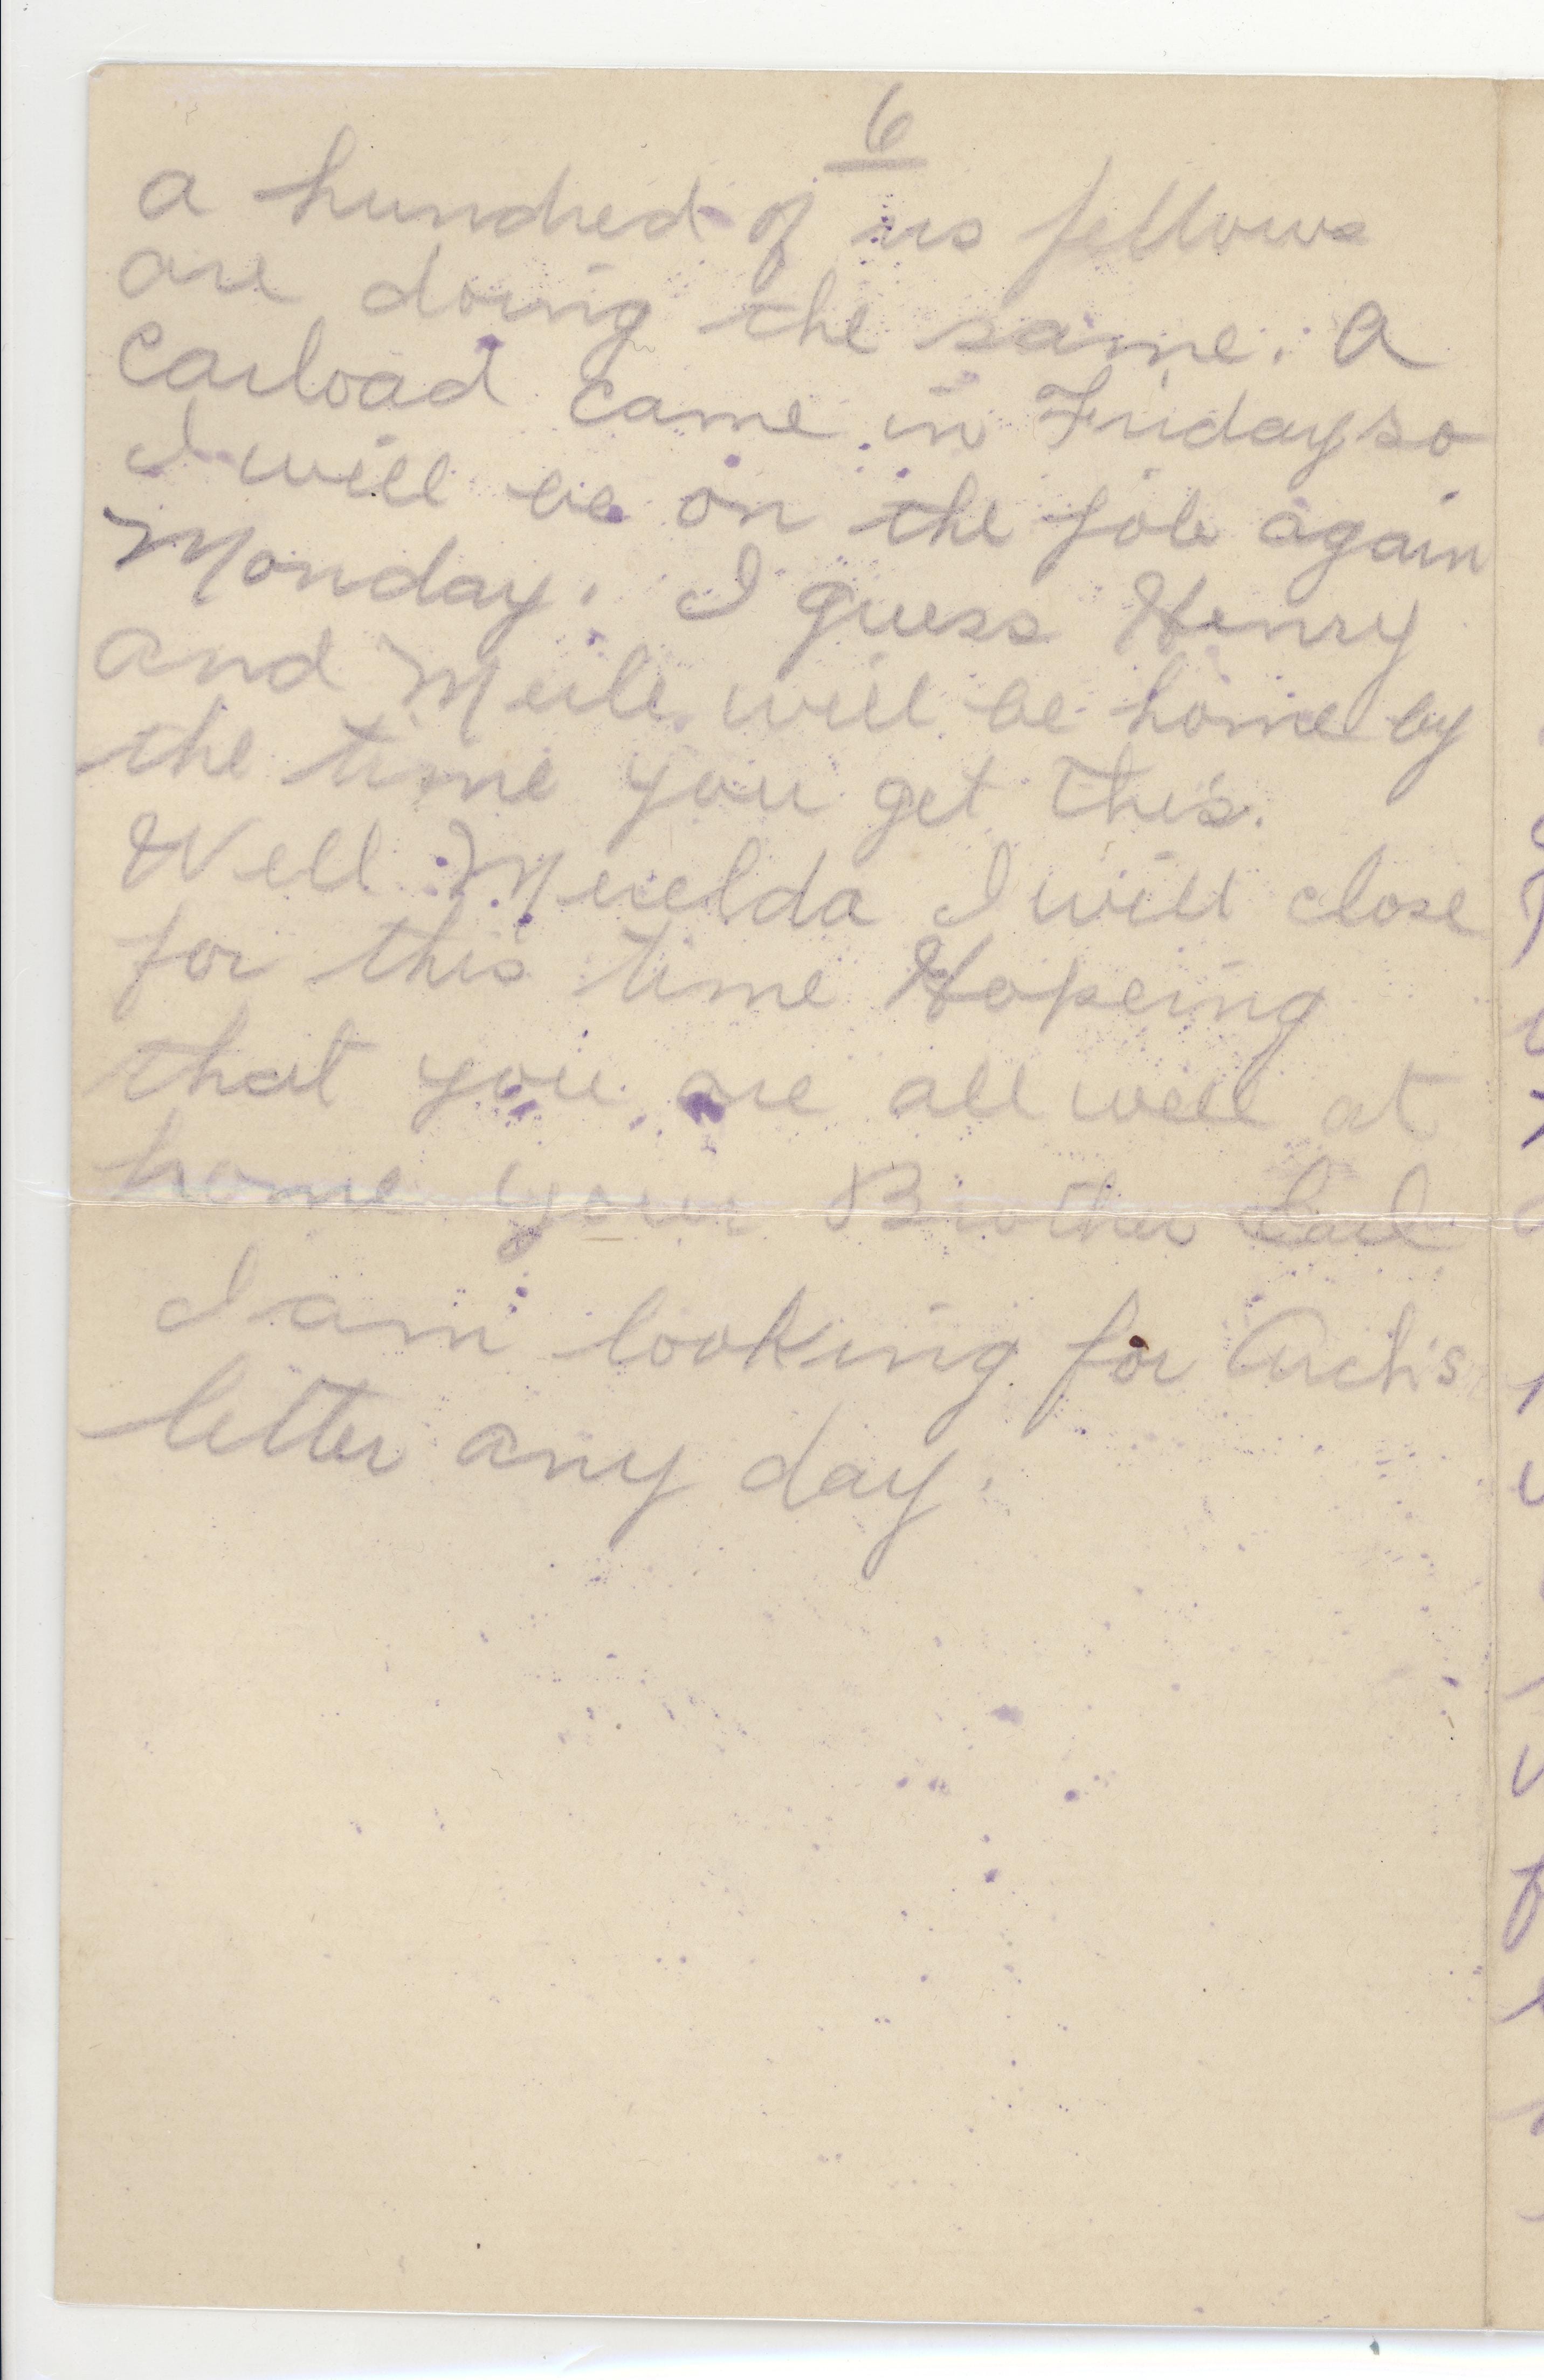 6
a hundred of us fellows
are doing the same. A
carload came in Friday so
I will be on the job again
Monday. I guess Henry
and Merle will be home by
the time you get this.
Well Merelda I will close
for this time Hopeing
that you are all well at
home your Brother Earl
I am looking for Arch's
letter any day.